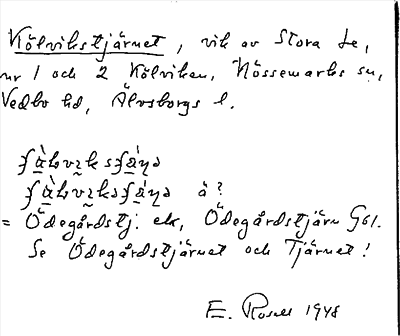 Kölvikstjärnet, vik av Stora Le,
nr 1 och 2 Kölviken, Nössemarks sn,
Vedbo hd, Älvsborgs l.
ä?
= Ödegårdstj. ek, Ödegårdstjärn Ggl.
Se Ödegårdstjärnet och Tjärnet!
E. Rosell 1948